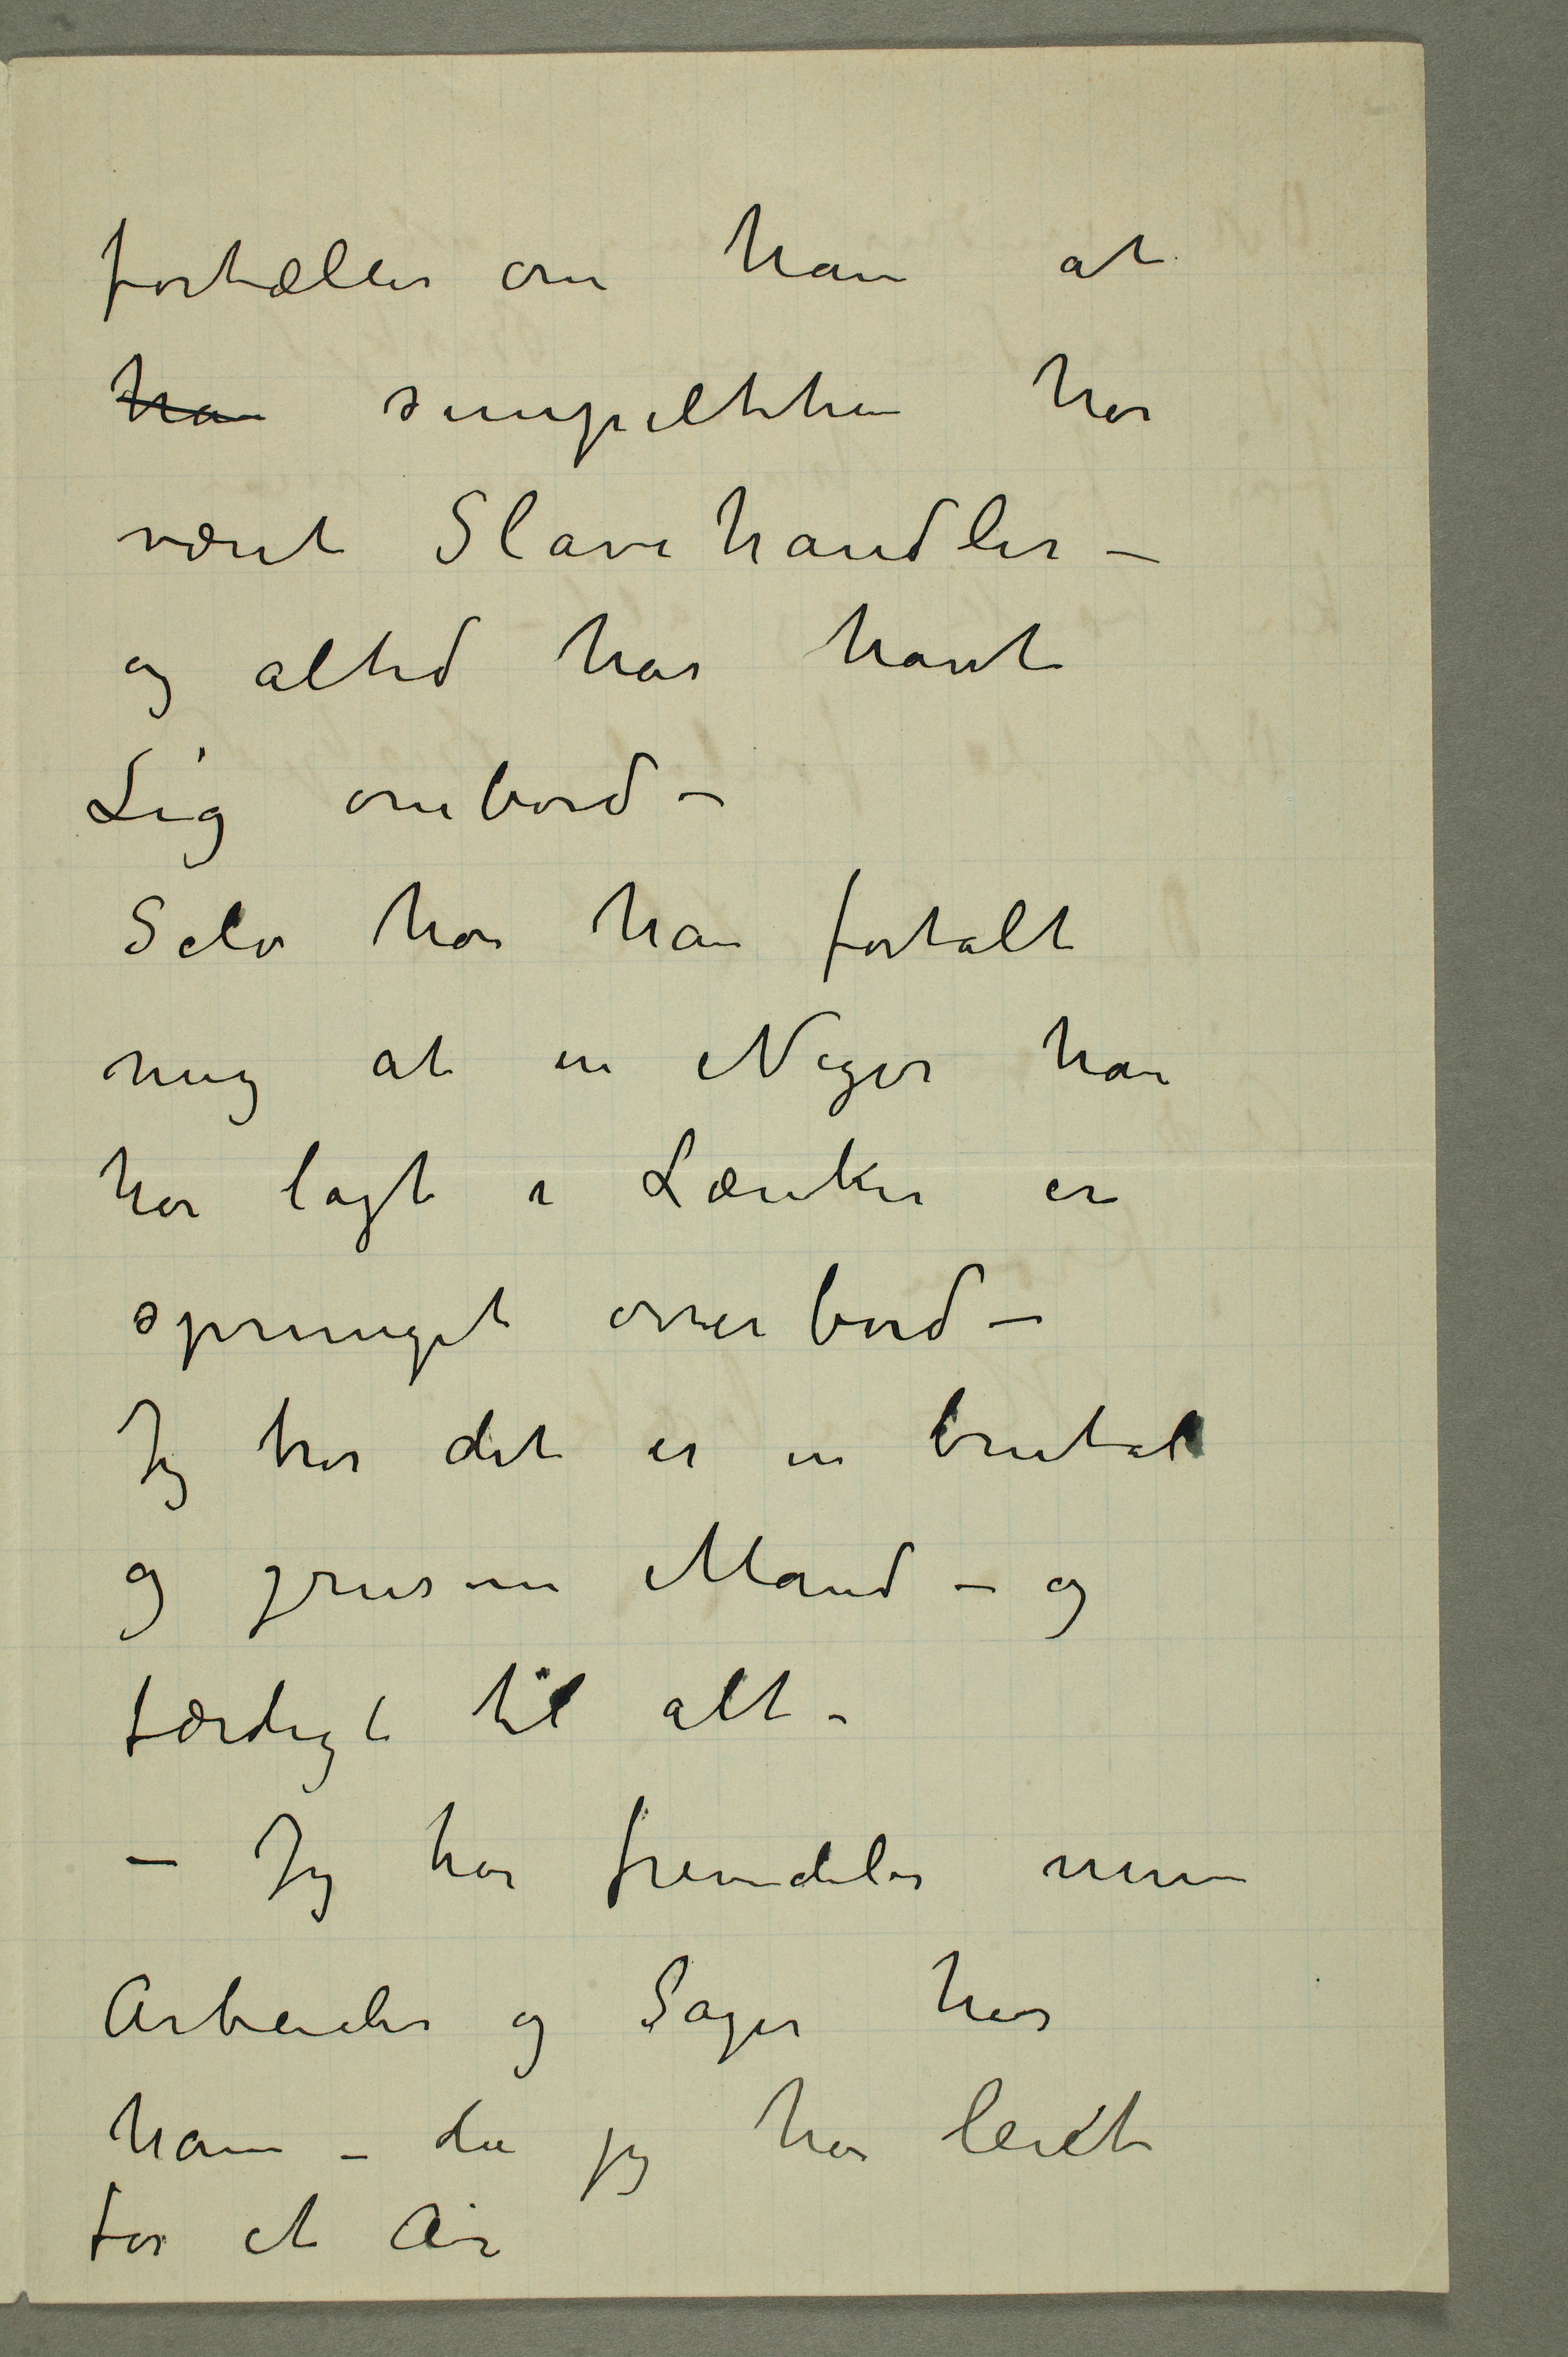 fortæller om ham at
han simpelthen har
været Slavehandler –
og altid har havt
Lig ombord –
Selv har han fortalt
mig at en Neger han
har lagt i Lænker er
sprunget overbord –
Jeg tror det er en brutal
og grusom Mand – og
færdigt til alt –
– Jeg har fremdeles mine
Arbeider og Sager hos
ham – da jeg har leiet
for et Aar